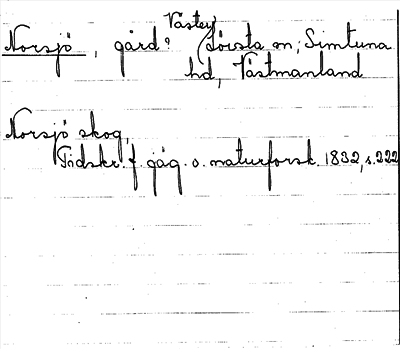 Väster
Norsjö, gård? Lövsta sn, Simtuna
hd, Västmanland
Norsjö skog,
Tidskr. f. jäg. o. naturforsk. 1832, s. 222